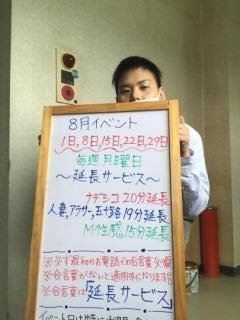 8月イベント
1日,8日,15日,22日,29日
毎週月曜日
～延長サービス～
ナデシコ20分延長
人妻,アラサー,五十路19分延長
M性感15分延長
※必ず最初のお電話で合言葉必須
※合言葉がないと適用外になります
※合言葉は「延長サービス」
イベント日は特に